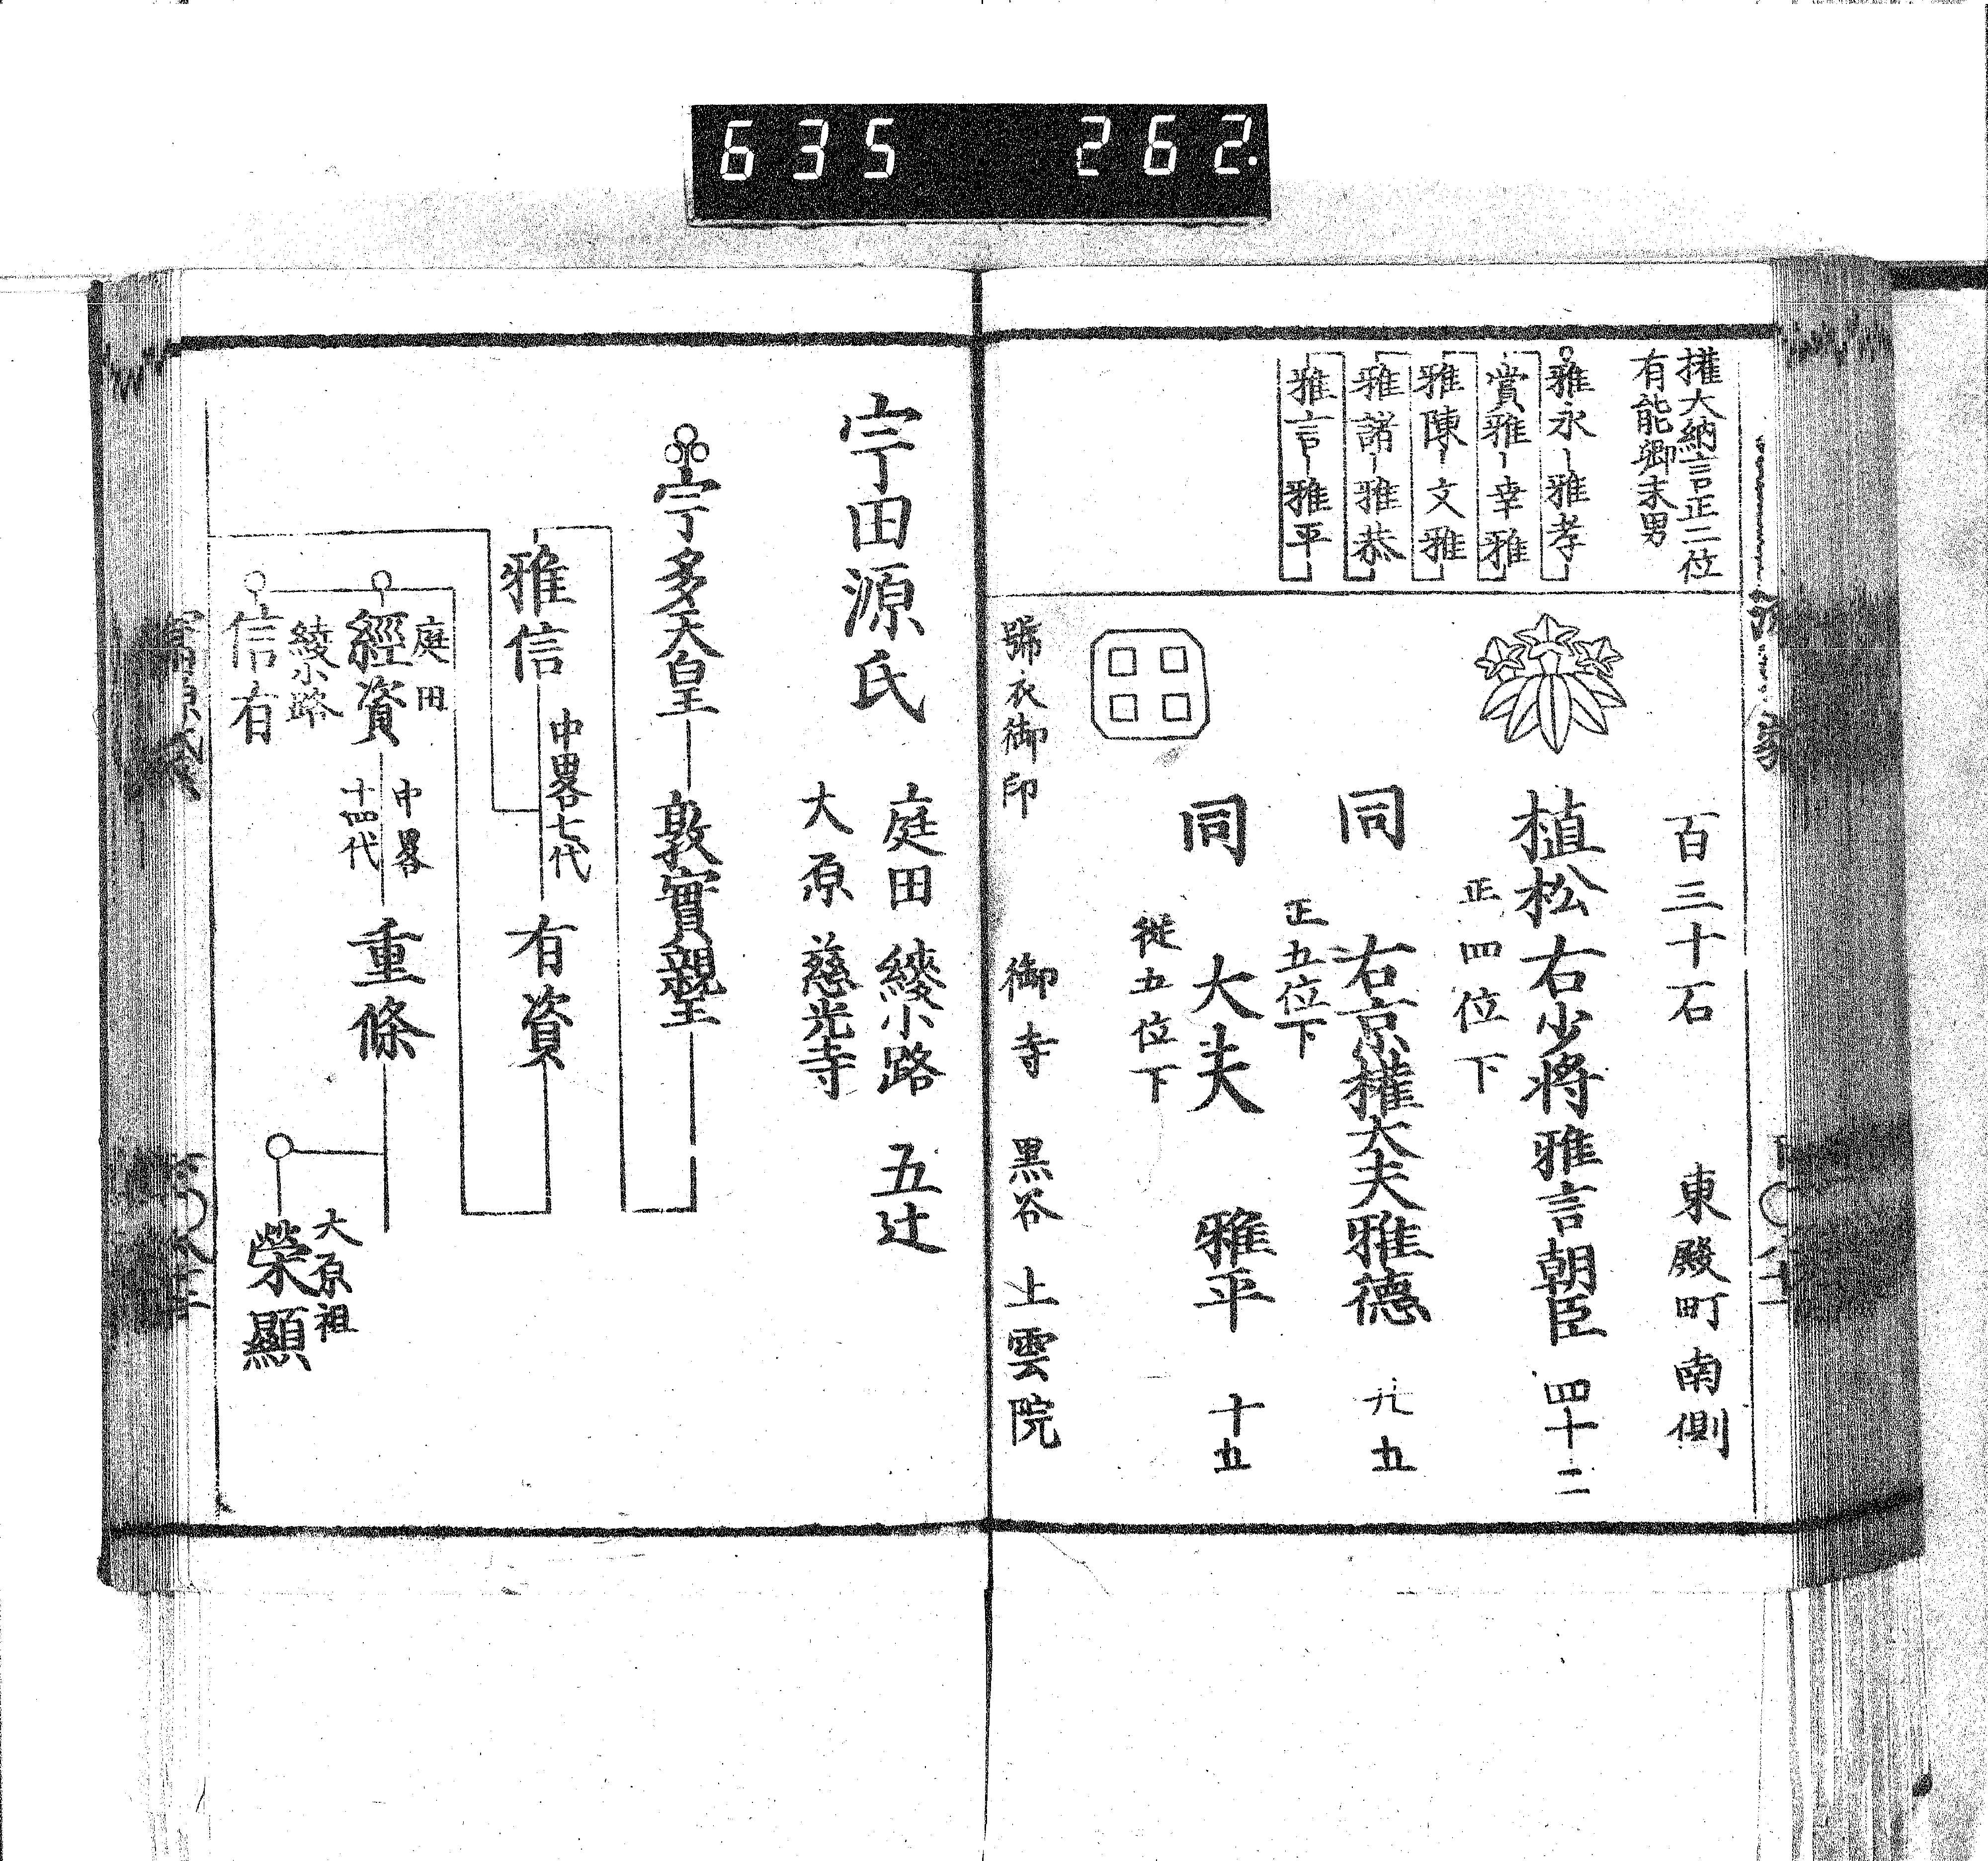 635 262.
權大納言正二位
有能卿末男
雅永-雅孝
賞雅-幸雅
雅陳-文雅
雅諸-雅恭
雅言-雅平
百三十石 東殿町南側
植松右少将雅言朝臣 四十二
正四位下
同 右京權大夫雅德 廿五
正五位下
同 大夫 雅平 十五
從五位下
號衣御印 御寺 黒谷 上雲院
宇田源氏
庭田 綾小路 五辻
大原 慈光寺
宇多天皇 敦實親王
雅信 中畧七代 有資
庭田
經資 中畧十四代 重條
綾小路
信有
大原祖
榮顯